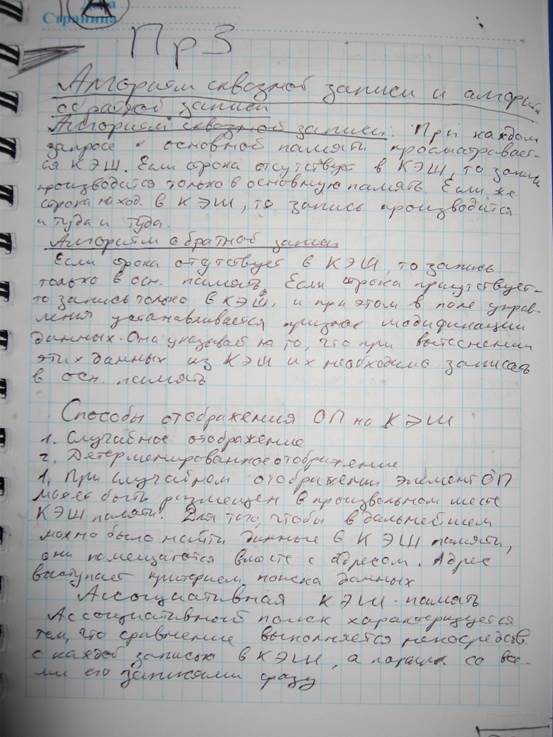 Дата
Страница
Пр 3
Алгоритм сквозной записи и алгоритм
обратной записи
Алгоритм сквозной записи. При каждом
запросе к основной памяти просматривает-
ся КЭШ. Если строка отсутствует в КЭШ, то запись
производится только в основную память. Если же
строка наход. в КЭШ, то запись производится
и туда и туда.
Алгоритм обратной записи
Если строка отсутствует в КЭШ, то запись
только в осн. память. Если строка присутствует-
то запись только в КЭШ, и при этом в поле управ-
ления устанавливается признак модификации
данных. Она указывает на то, что при вытеснении
этих данных из КЭШ их необходимо записать
в осн. память
Способы отображения ОП на КЭШ
1. Случайное отображение
2. Детерминированное отображение
1. При случайном отображении элемент ОП
может быть размещен в произвольном месте
КЭШ памяти. Для того, чтобы в дальнейшем
можно было найти данные в КЭШ памяти,
они помещаются вместе с адресом. Адрес
выступает критерием поиска данных
Ассоциативная КЭШ-память
Ассоциативный поиск характеризуется
тем, что сравнение выполняется непосредств.
с каждой записью в КЭШ, а со все-
ми его записями сразу